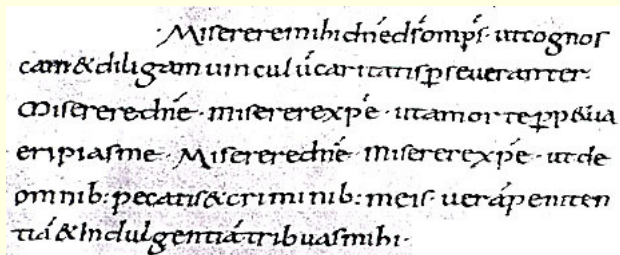 · Misereremihi dn̄e ds̄ omp̄s · utcognos
cam & diligam uinculū caritatis ꝑseueranter ·
Miserere dn̄e · miserere xp̄e · utamorte ꝑp&ua
eripias me · Miserere dn̄e miserere xp̄e · ut de
omnib: peccatis & criminib: meis · uerā peniten
tiā & Indulgentiā tribuas mihi ·